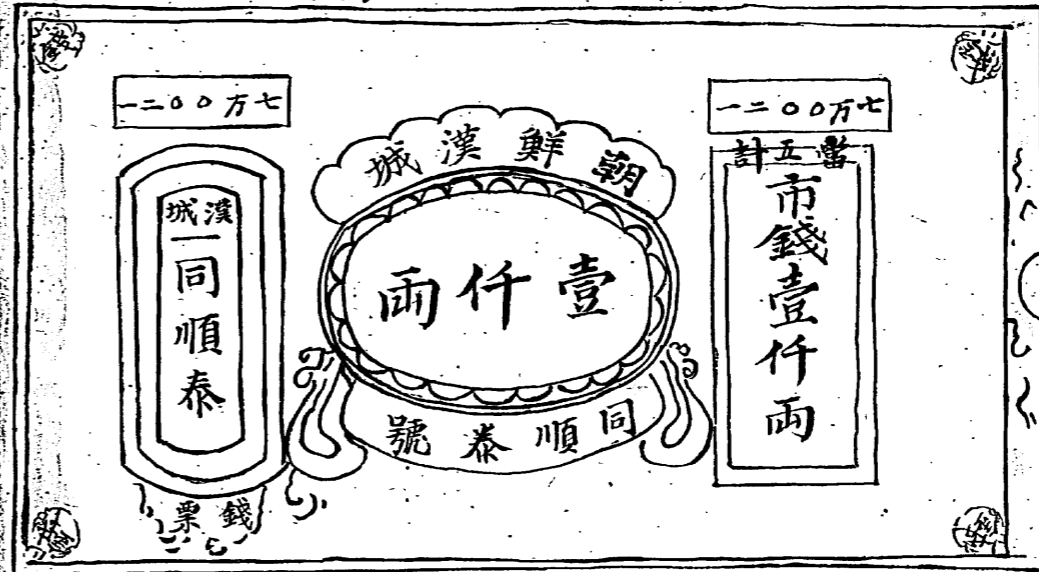 七万〇〇二一
當五計
市錢壹仟兩
朝鮮漢城
壹仟兩
同順泰號
七万〇〇二一
漢城
同順泰
錢票